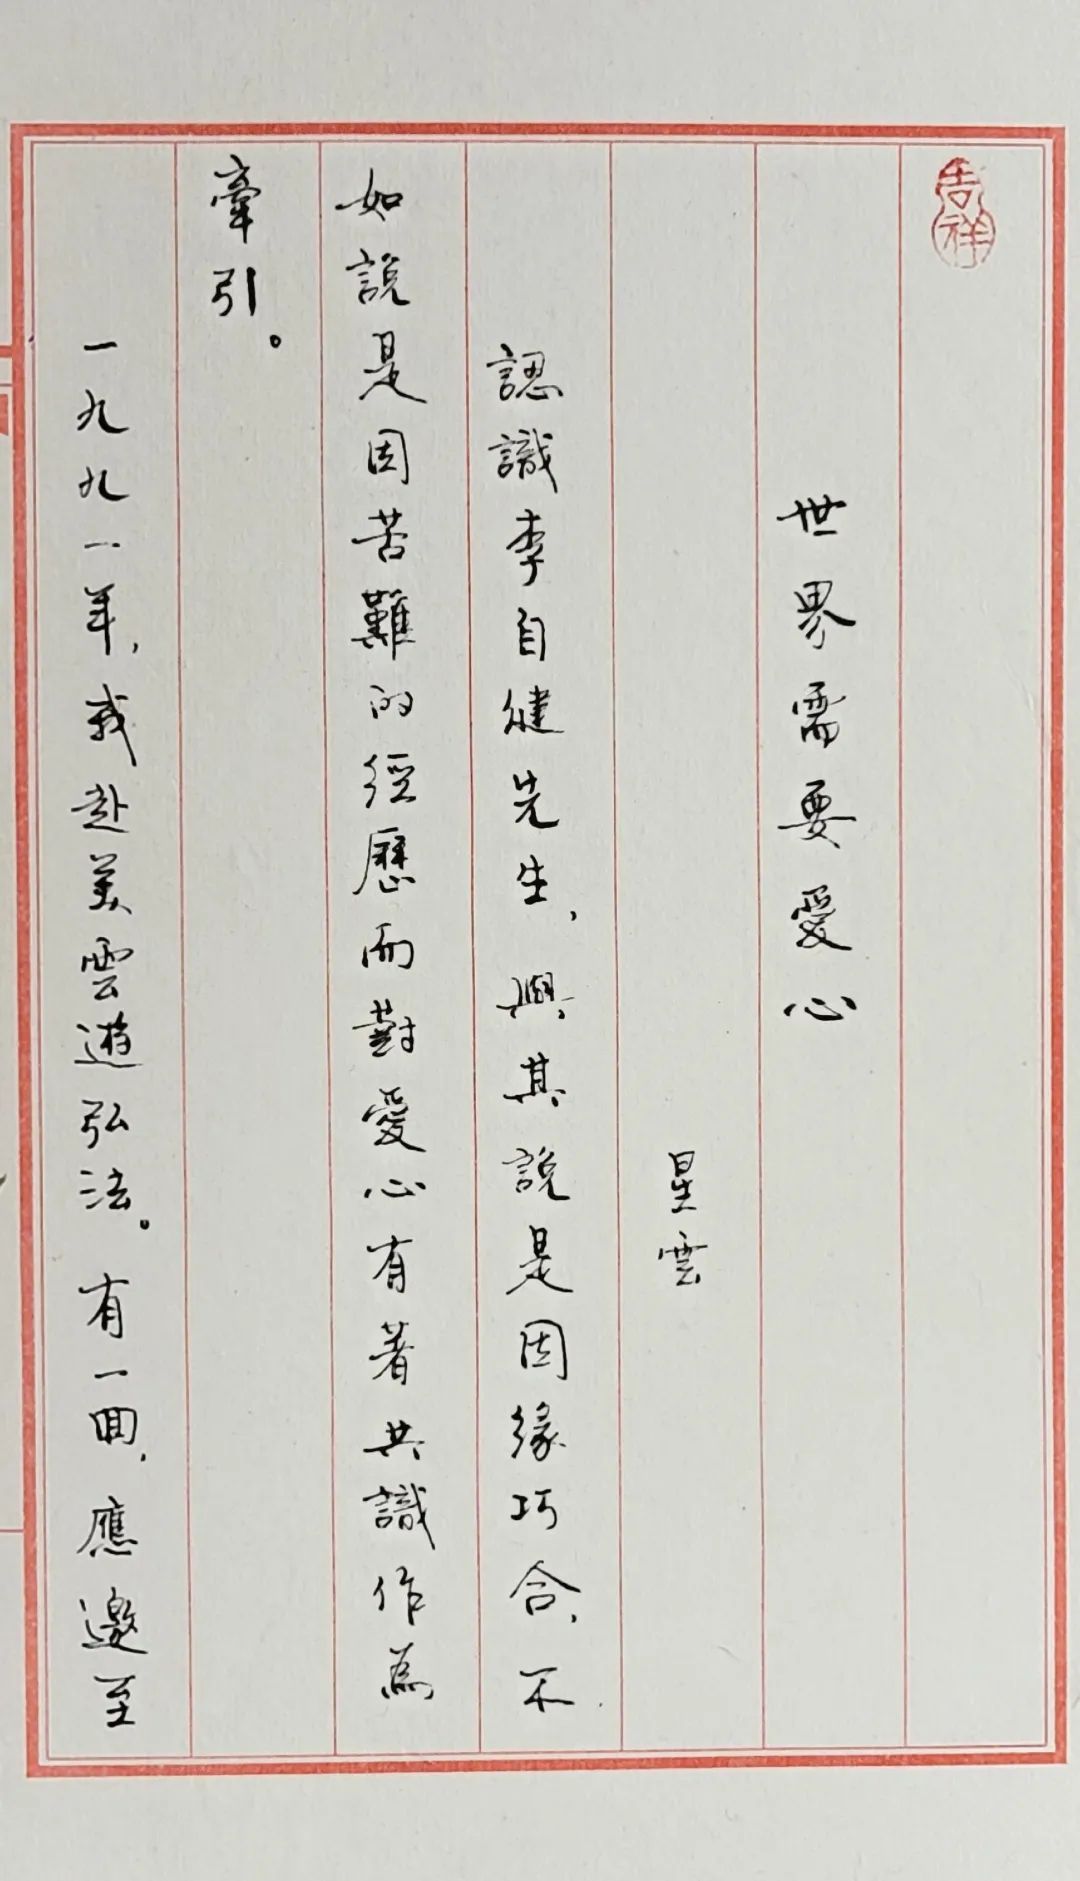 吉祥
世界需要愛心
星雲
認識李自健先生，與其說是因緣巧合，不
如說是因苦難的經歷而對愛心有著共識作為
牽引。
一九九一年，我赴美雲遊弘法。有一回，應邀至